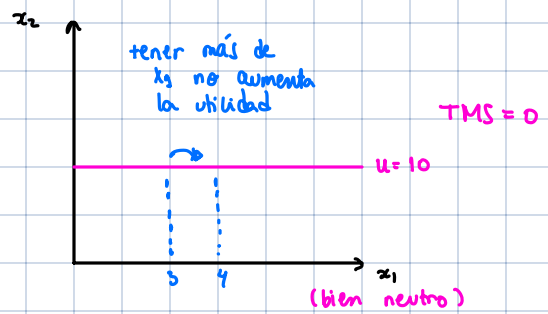 x₂
tener más de
x₁ no aumenta
la utilidad
TMS = 0
u = 10
3
4
x₁
(bien neutro)